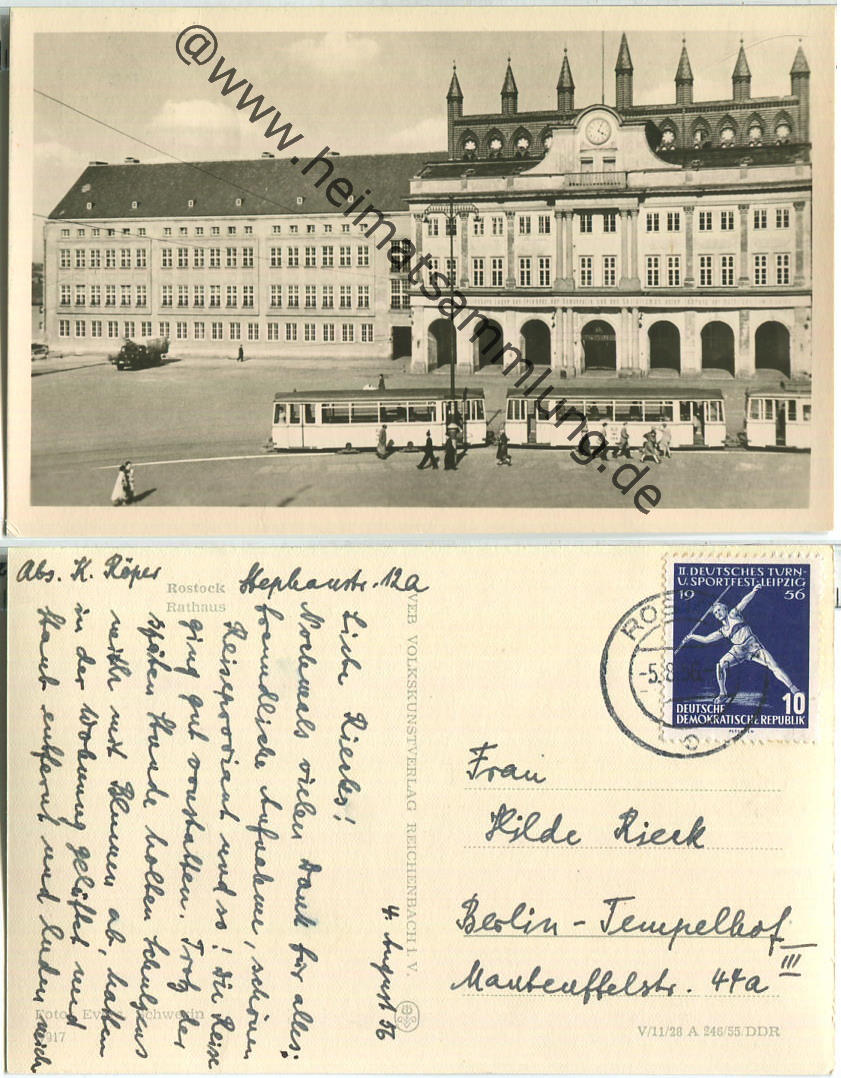 @www.heimatsammlung.de
Abs. K. Röper Stephanstr. 12a
Rostock
Rathaus
4. August 56
Liebe Riecks!
Nochmals vielen Dank für alles:
freundliche Aufnahme, schönen
Reiseproviant und so! Die Reise
ging gut vonstatten. Trotz der
späten Stunde holten Schulzens
mich mit Blumen ab, hatten
in der Wohnung gelüftet und
Staub entfernt und luden mich
Foto: Schwerin
VEB VOLKSKUNSTVERLAG REICHENBACH i. V.
II. DEUTSCHES TURN-
U. SPORTFEST LEIPZIG
19 56
10
DEUTSCHE
DEMOKRATISCHE REPUBLIK
-5.8.56
Frau
Hilde Rieck
Berlin-Tempelhof
Manteuffelstr. 44a III
V/11/28 A 246/55/DDR